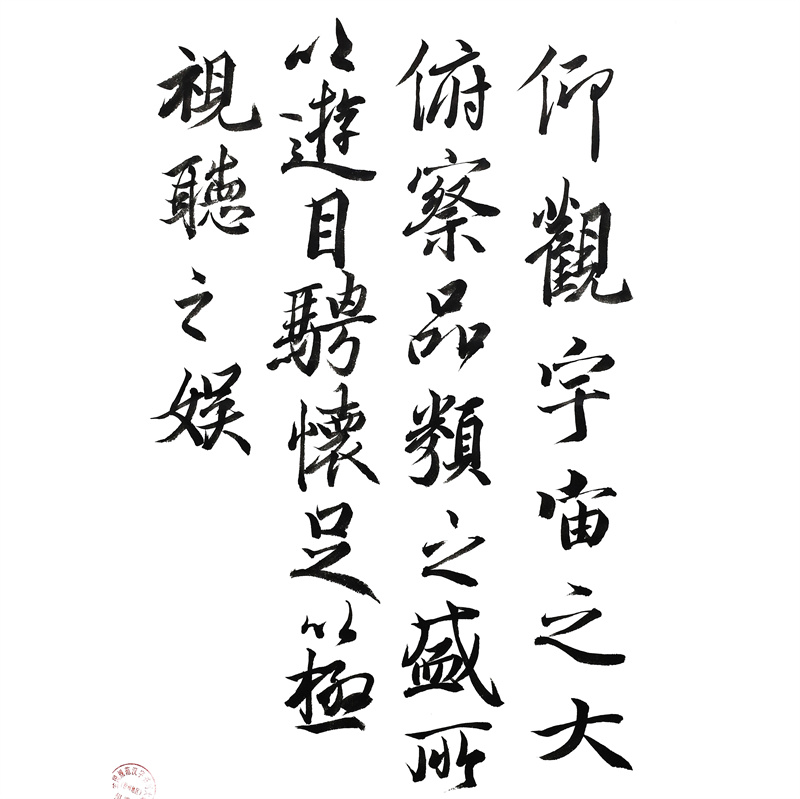 仰觀宇宙之大
俯察品類之盛所
以遊目騁懷足以極
視聽之娱